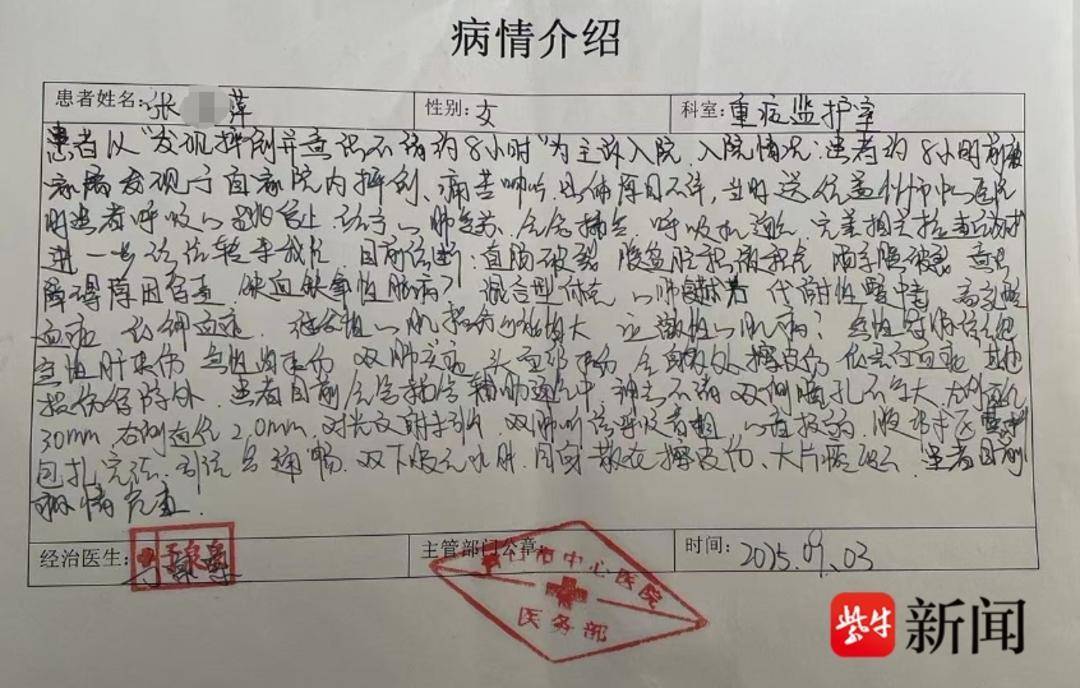 病情介绍
患者姓名: 张 萍 性别: 女 科室: 重症监护室
患者以“发现摔倒并意识不清约8小时”为主诉入院.入院情况:患者约8小时前被
家属发现于自家院内摔倒、痛苦呻吟.具体原因不详,当时送住盖州市中心医院
时患者呼吸心跳骤停.给予心肺复苏.气管插管.呼吸机通气.完善相关检查后
进一步诊治转来我院 目前诊断:直肠破裂 腹盆腔积液积气 破裂 意识
障碍原因待查 缺血缺氧性脑病? 混合型休克 心肺复苏术后 代谢性酸中毒 高乳酸
血症 高钾血症. 心肌损伤 应激性心肌病?
急性肝损伤 急性肾损伤 双肺 头面部外伤 全身多处擦皮伤 低蛋白血症 其他
损伤待除外. 患者目前气管插管辅助通气中,神志不清 双侧瞳孔不等大,左侧直径
30mm 右侧直径2.0mm.对光反射 双肺听诊呼吸音粗 腹部术区
包扎完活.引流管通畅.双下肢无水肿.周身散在擦皮伤、大片瘀斑. 患者目前
病情危重.
经治医生: 主管部门公章: 时间: 2025.09.03
市中心医院
医务部
紫牛 新闻